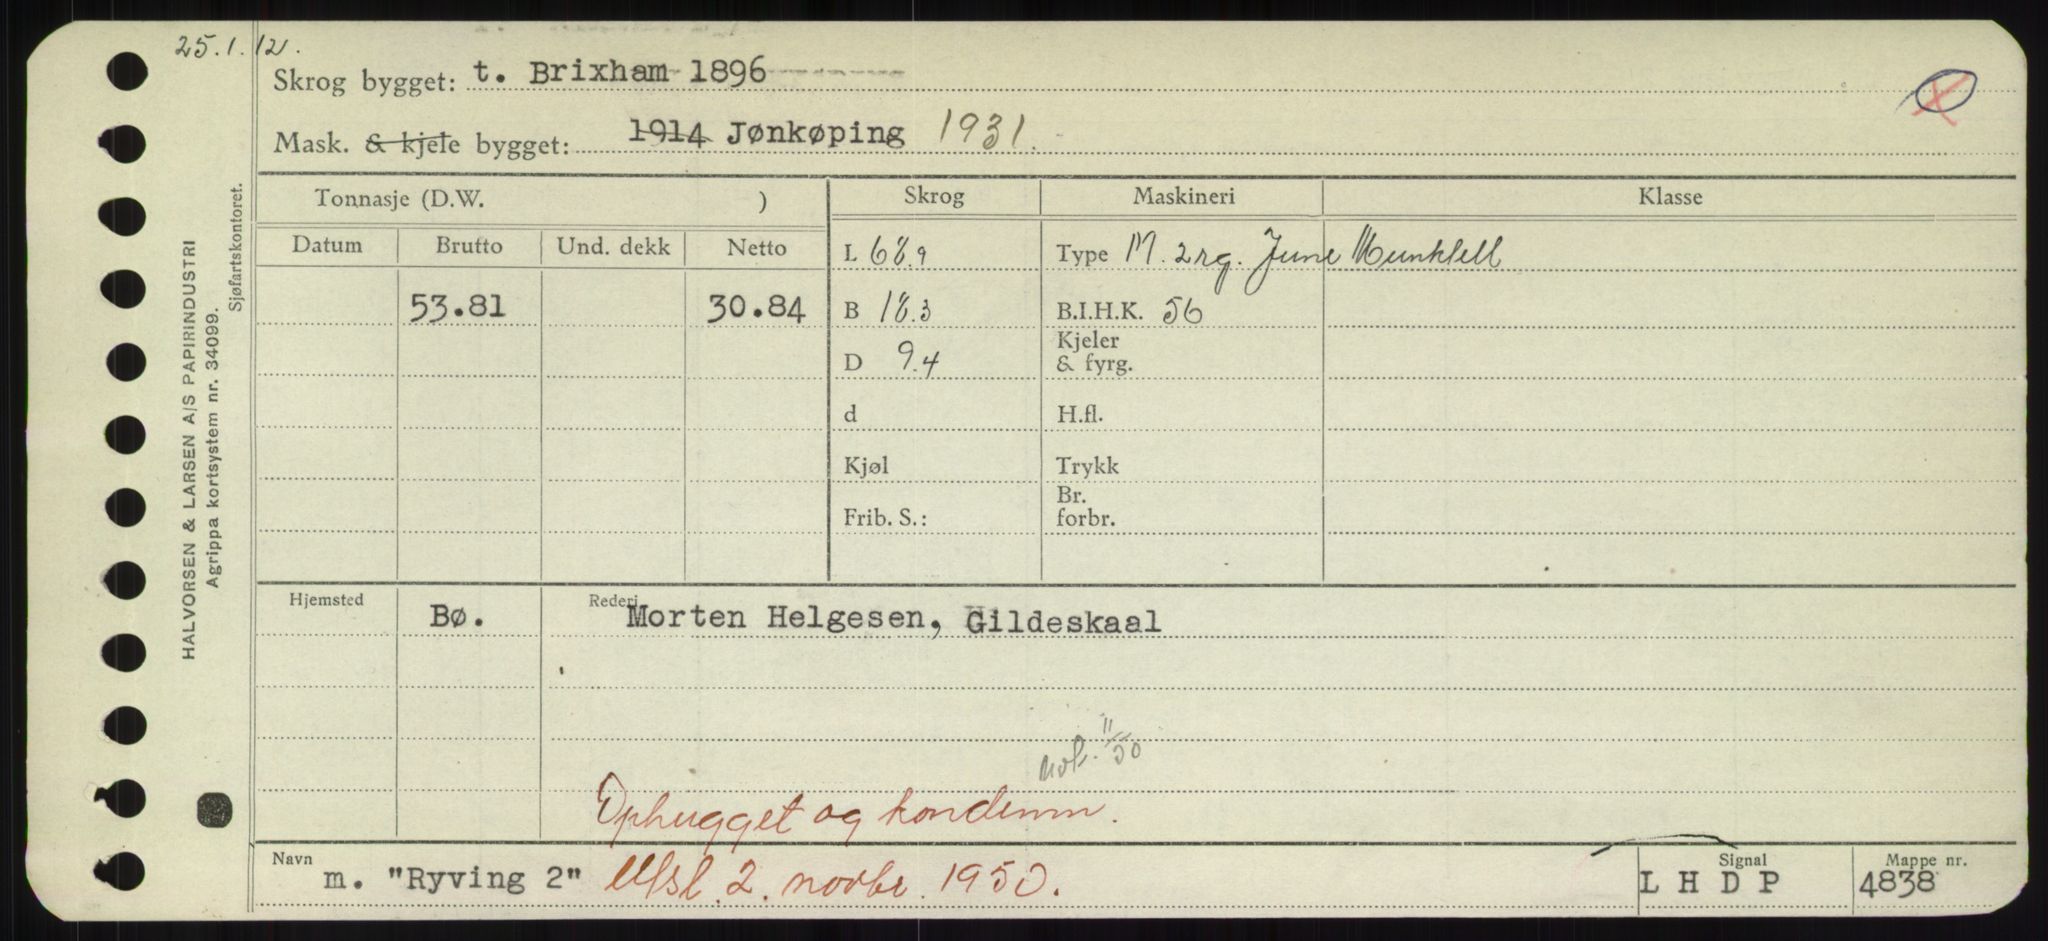 25.1.12.
Skrog bygget: t. Brixham 1896
Mask. & kjele bygget: 1914 Jønkøping 1931.
Tonnasje (D.W. ) Skrog Maskineri Klasse
Datum Brutto Und. dekk Netto L 68.9 Type M. 2 rg. June Munktell
53.81 30.84 B 18.3 B.I.H.K. 56
D 9.4 Kjeler & fyrg.
d H.fl.
Kjøl Trykk
Frib. S.: Br. forbr.
Hjemsted Bø. Rederi Morten Helgesen, Gildeskaal
11/50
Ophugget og kondemn.
Navn m. "Ryving 2" Utsl. 2. novbr. 1950. Signal L H D P Mappe nr. 4838
HALVORSEN & LARSEN A/S PAPIRINDUSTRI
Agrippa kortsystem nr. 34099.
Sjøfartskontoret.